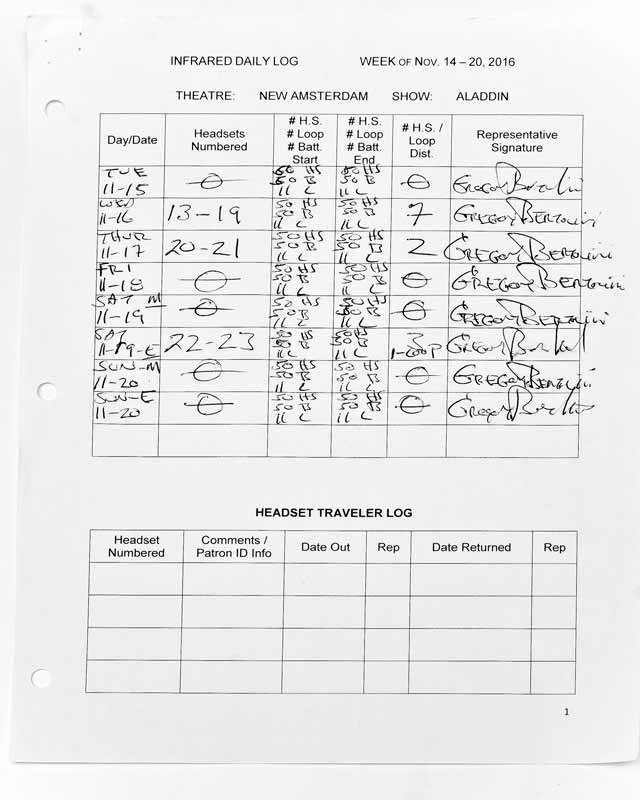 INFRARED DAILY LOG WEEK OF NOV. 14 – 20, 2016
THEATRE: NEW AMSTERDAM SHOW: ALADDIN
Day/Date Headsets Numbered # H.S. # Loop # Batt. Start # H.S. # Loop # Batt. End # H.S. / Loop Dist. Representative Signature
TUE 11-15 0 50 HS 50 B 11 C 50 HS 50 B 11 C 0 Gregory Bertolini
WED 11-16 13-19 50 HS 50 B 11 C 50 HS 50 B 11 C 7 GREGORY BERTOLINI
THUR 11-17 20-21 50 HS 50 B 11 C 50 HS 50 B 11 C 2 GREGORY BERTOLINI
FRI 11-18 0 50 HS 50 B 11 C 50 HS 50 B 11 C 0 GREGORY BERTOLINI
SAT M 11-19 0 50 HS 50 B 11 C 50 HS 50 B 11 C 0 GREGORY BERTOLINI
SAT 11-19-E 22-23 50 HS 50 B 11 C 50 HS 50 B 11 C 3 1-LOOP Gregory
SUN-M 11-20 0 50 HS 50 B 11 C 50 HS 50 B 11 C 0 GREGORY BERTOLINI
SUN-E 11-20 0 50 HS 50 B 11 C 50 HS 50 B 11 C 0 Gregory
HEADSET TRAVELER LOG
Headset Numbered Comments / Patron ID Info Date Out Rep Date Returned Rep
1